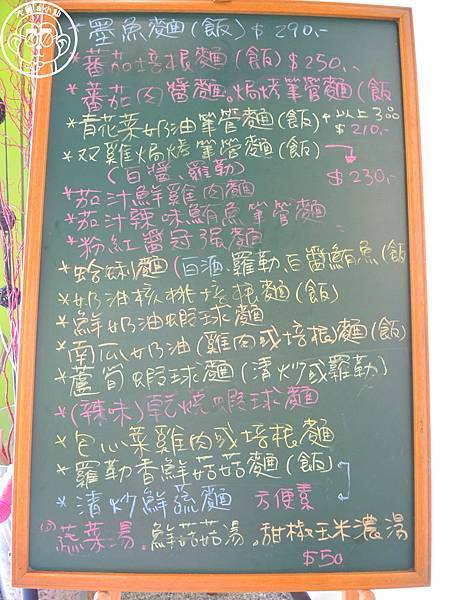 墨魚麵(飯) $290.-
*蕃茄培根麵(飯) $250.-
*蕃茄肉醬麵。焗烤筆管麵(飯
*青花菜奶油筆管麵(飯) 以上3品
$210.-
*双雞焗烤筆管麵(飯)
(白醬、羅勒) $230.-
*茄汁鮮雞肉麵
*茄汁辣味鮪魚筆管麵
*粉紅醬 麵
*蛤蜊麵(白酒,羅勒,白醬鮪魚(飯
*奶油核桃培根麵(飯)
*鮮奶油蝦球麵
*南瓜奶油(雞肉或培根)麵(飯)
*蘆筍蝦球麵(清炒或羅勒)
*(辣味)乾燒蝦球麵
*包心菜雞肉或培根麵
*羅勒香鮮菇菇麵(飯)
*清炒鮮蔬麵 方便素
蔬菜湯.鮮菇菇湯.甜椒玉米濃湯
$50